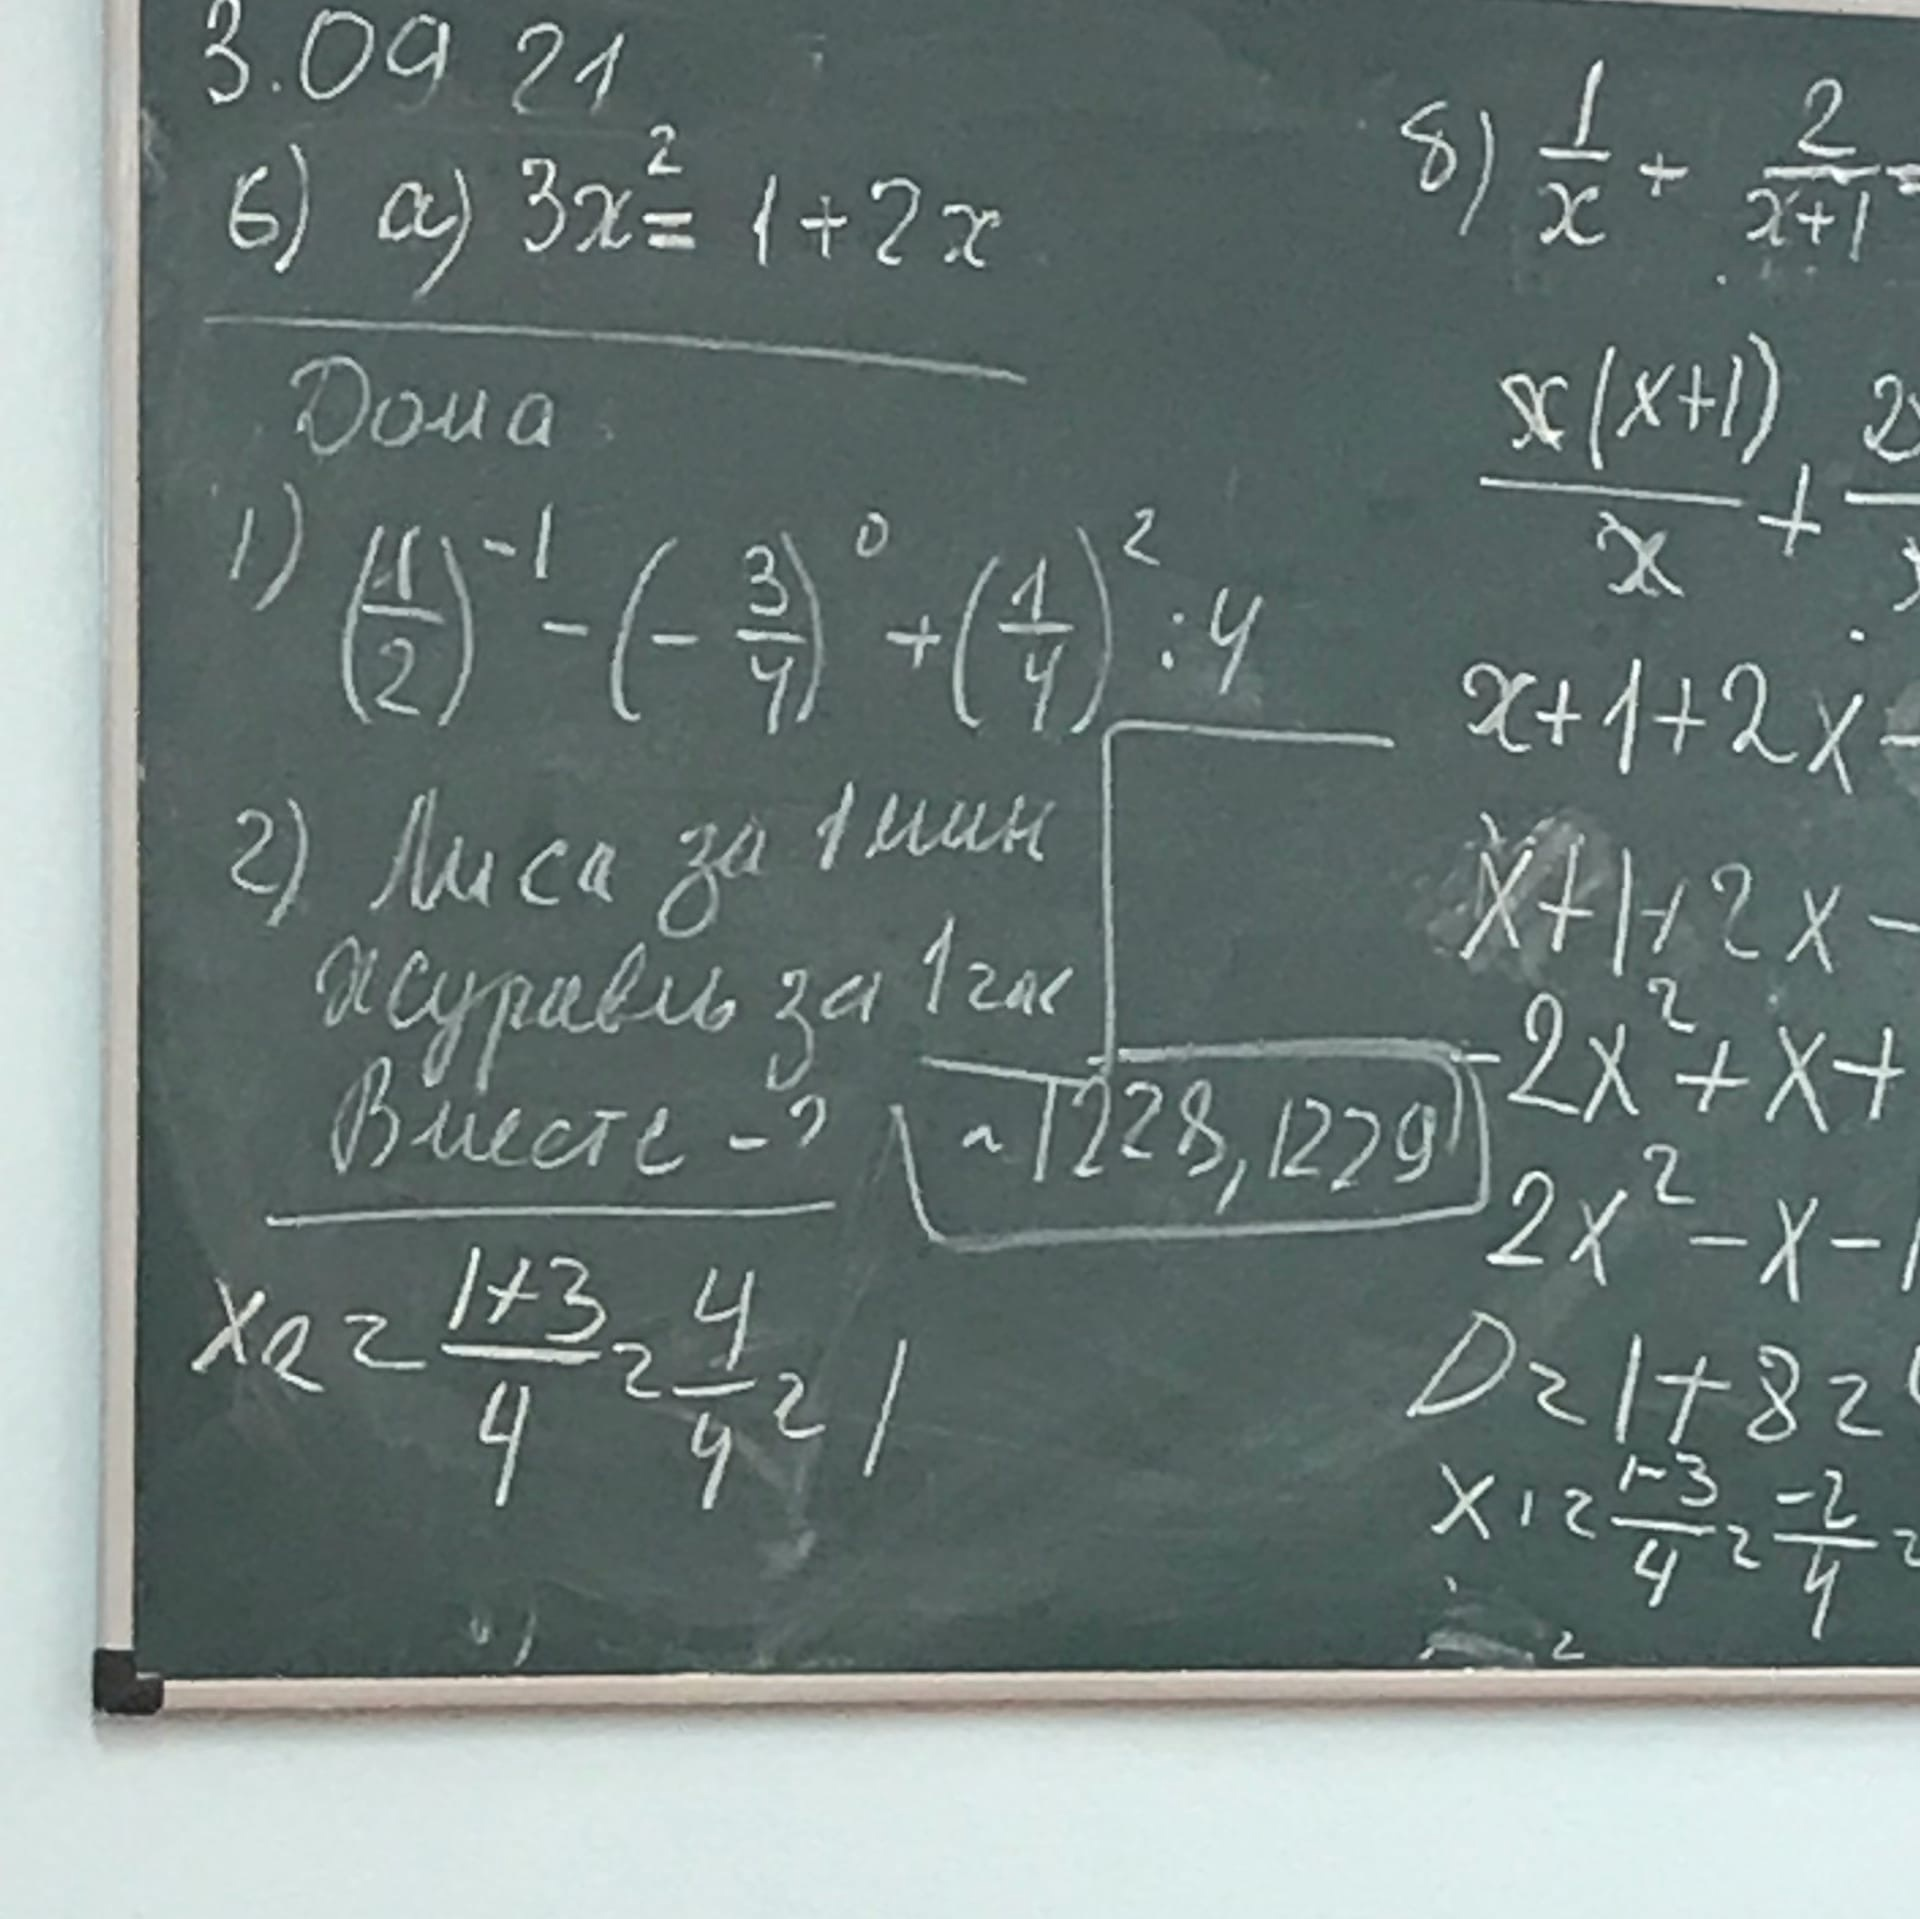 3.09 21
6) а) 3x² = 1+2x
Дома
1) (1/2)⁻¹ - (-3/4)⁰ + (1/4)² : 4
2) Лиса за 1 мин
журавль за 1 час
Вместе - ?
~1228, 1229
x₂ = (1+3)/4 = 4/4 = 1
б) 1/x + 2/(x+1) =
x(x+1)/x +
x+1+2x
x+1+2x -
-2x² + x +
2x² - x - 1
D = 1+8 =
x₁ = (1-3)/4 = -2/4 =